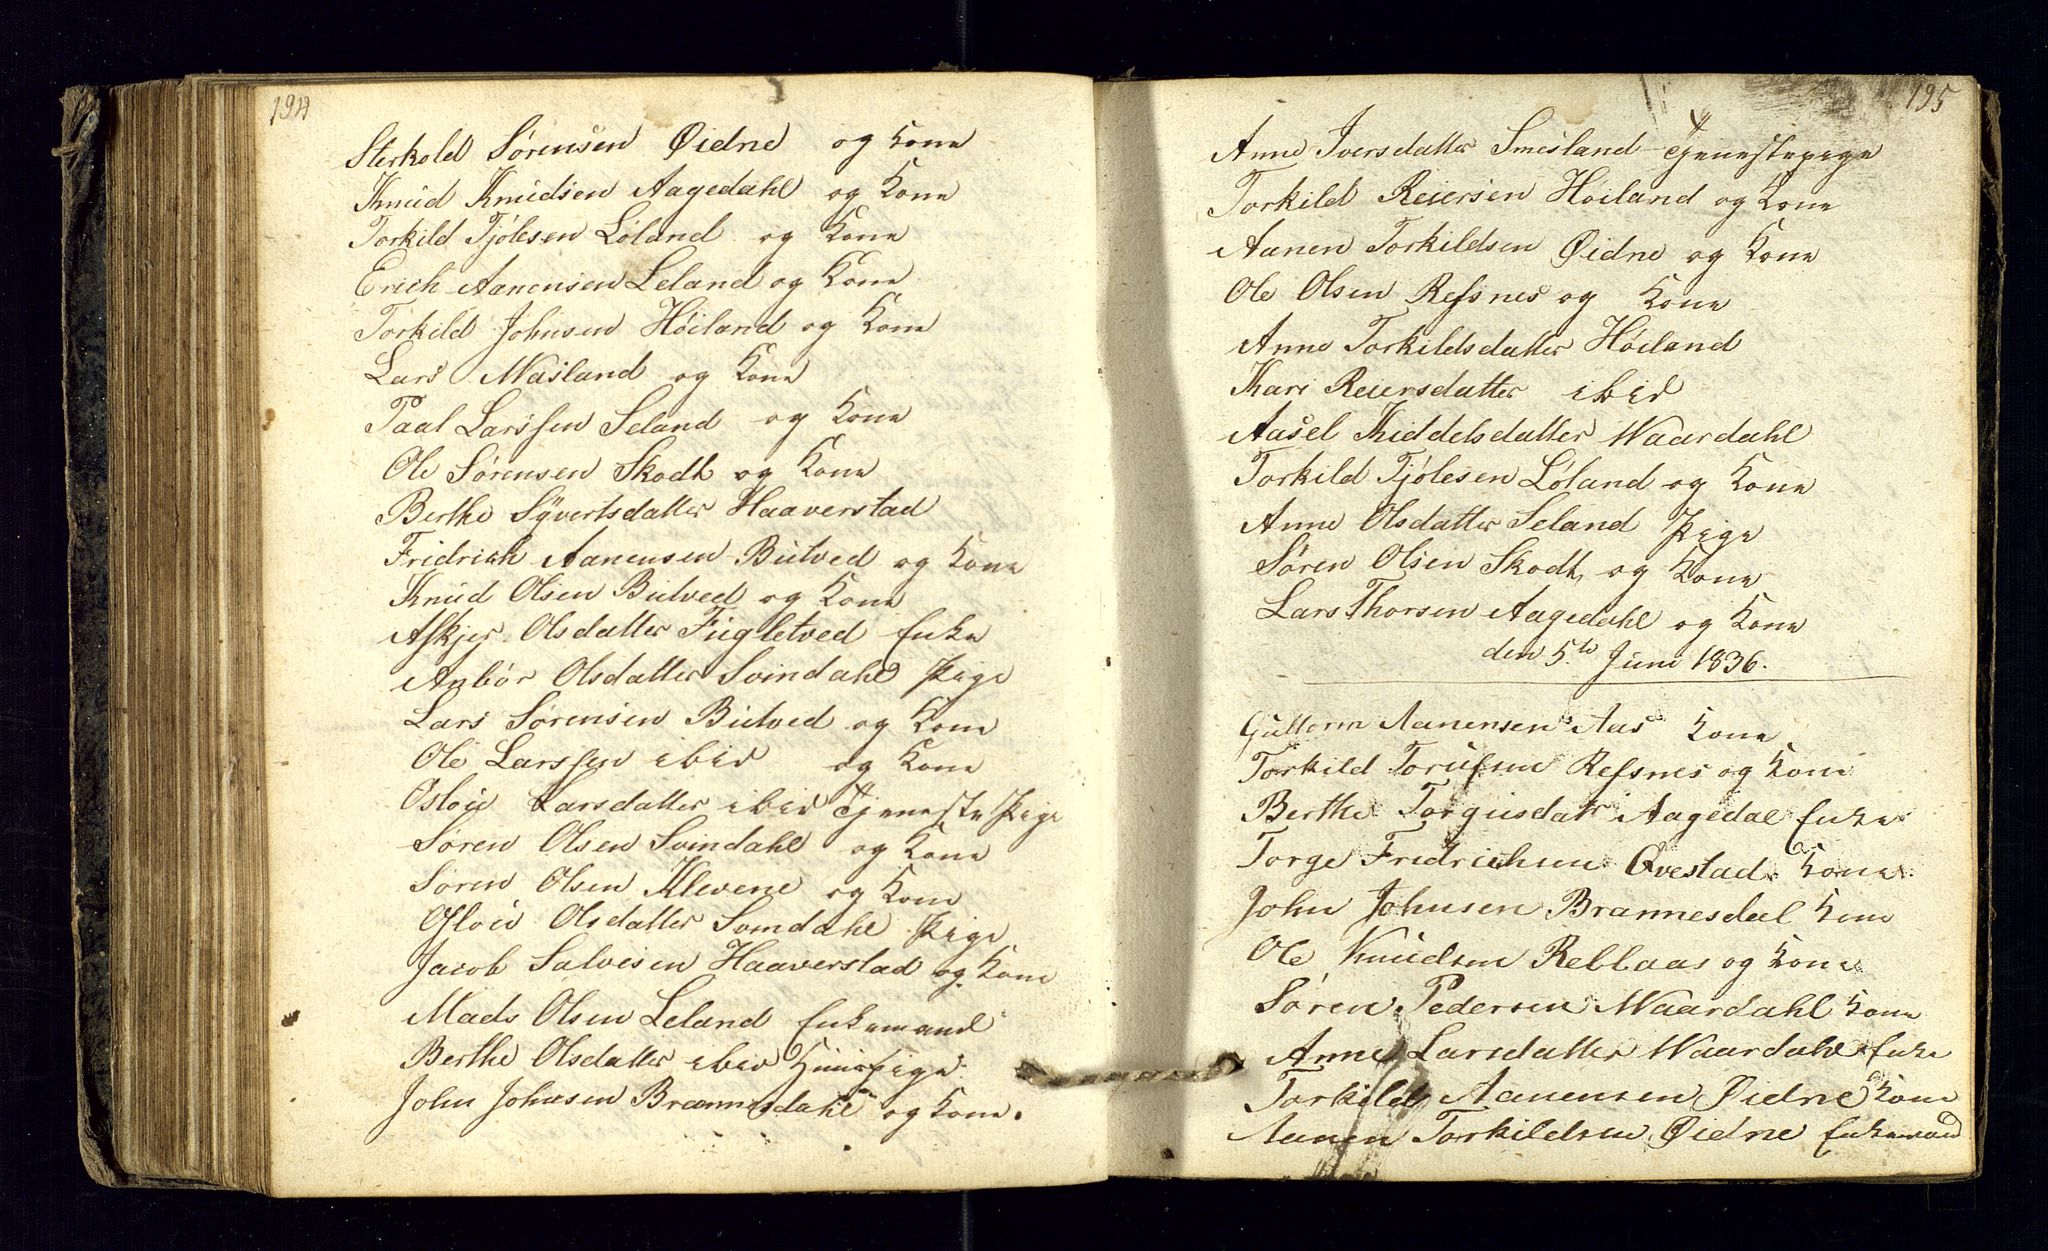 194
Sterkold Sørensen Øidne og Kone
Knud Knudsen Aagedahl og Kone
Torkild Tjølesen Løland og Kone
Erich Aanensen Leland og Kone
Torkild Johnsen Høiland og Kone
Lars Masland og Kone
Paal Larssen Seland og Kone
Ole Sørensen Skodt og Kone
Berthe Syvertsdatter Haaverstad
Fridrich Aanensen Butved og Kone
Knud Olsen Butved og Kone
Askjer Olsdatter Fugletved Enke
Anbør Olsdatter Svindahl Pige
Lars Sørensen Butved og Kone
Ole Larssen ibid og Kone
Osloü Larsdatter ibid Tjeneste Pige
Søren Olsen Svindahl og Kone
Søren Olsen Klevene og Kone
Osloü Olsdatter Svindahl Pige
Jacob Salvesen Haaverstad og Kone
Mads Olsen Leland Enkemand
Berthe Olsdatter ibid Huuspige
John Johnsen Brannesdahl og Kone.
195
Anne Iversdatter Smesland Tjenestepige
Torkild Reiersen Høiland og Kone
Aanen Torkildsen Øidne og Kone
Ole Olsen Refsnes og Kone
Anne Torkildsdatter Høiland
Kari Reiersdatter ibid
Aasel Kiddelsdatter Waardahl
Torkild Tjølesen Løland og Kone
Anne Olsdatter Seland Pige
Søren Olsen Skodt og Kone
Lars Thorsen Aagedahl og Kone
den 5te Juni 1836.
Guttorm Aanensen Aas Kone
Torkild Torufsen Refsnes og Kone
Berthe Torgusdatr Aagedal Enke
Torge Fredrichsen Qvestad Kone
John Johnsen Brannesdal Kone
Ole Knudsen Reblaas og Kone
Søren Pedersen Waardahl Kone
Anne Larsdatter Waardahl Enke
Torkild Aanensen Øidne Kone
Aanen Torkildsen Øidne Enkemand